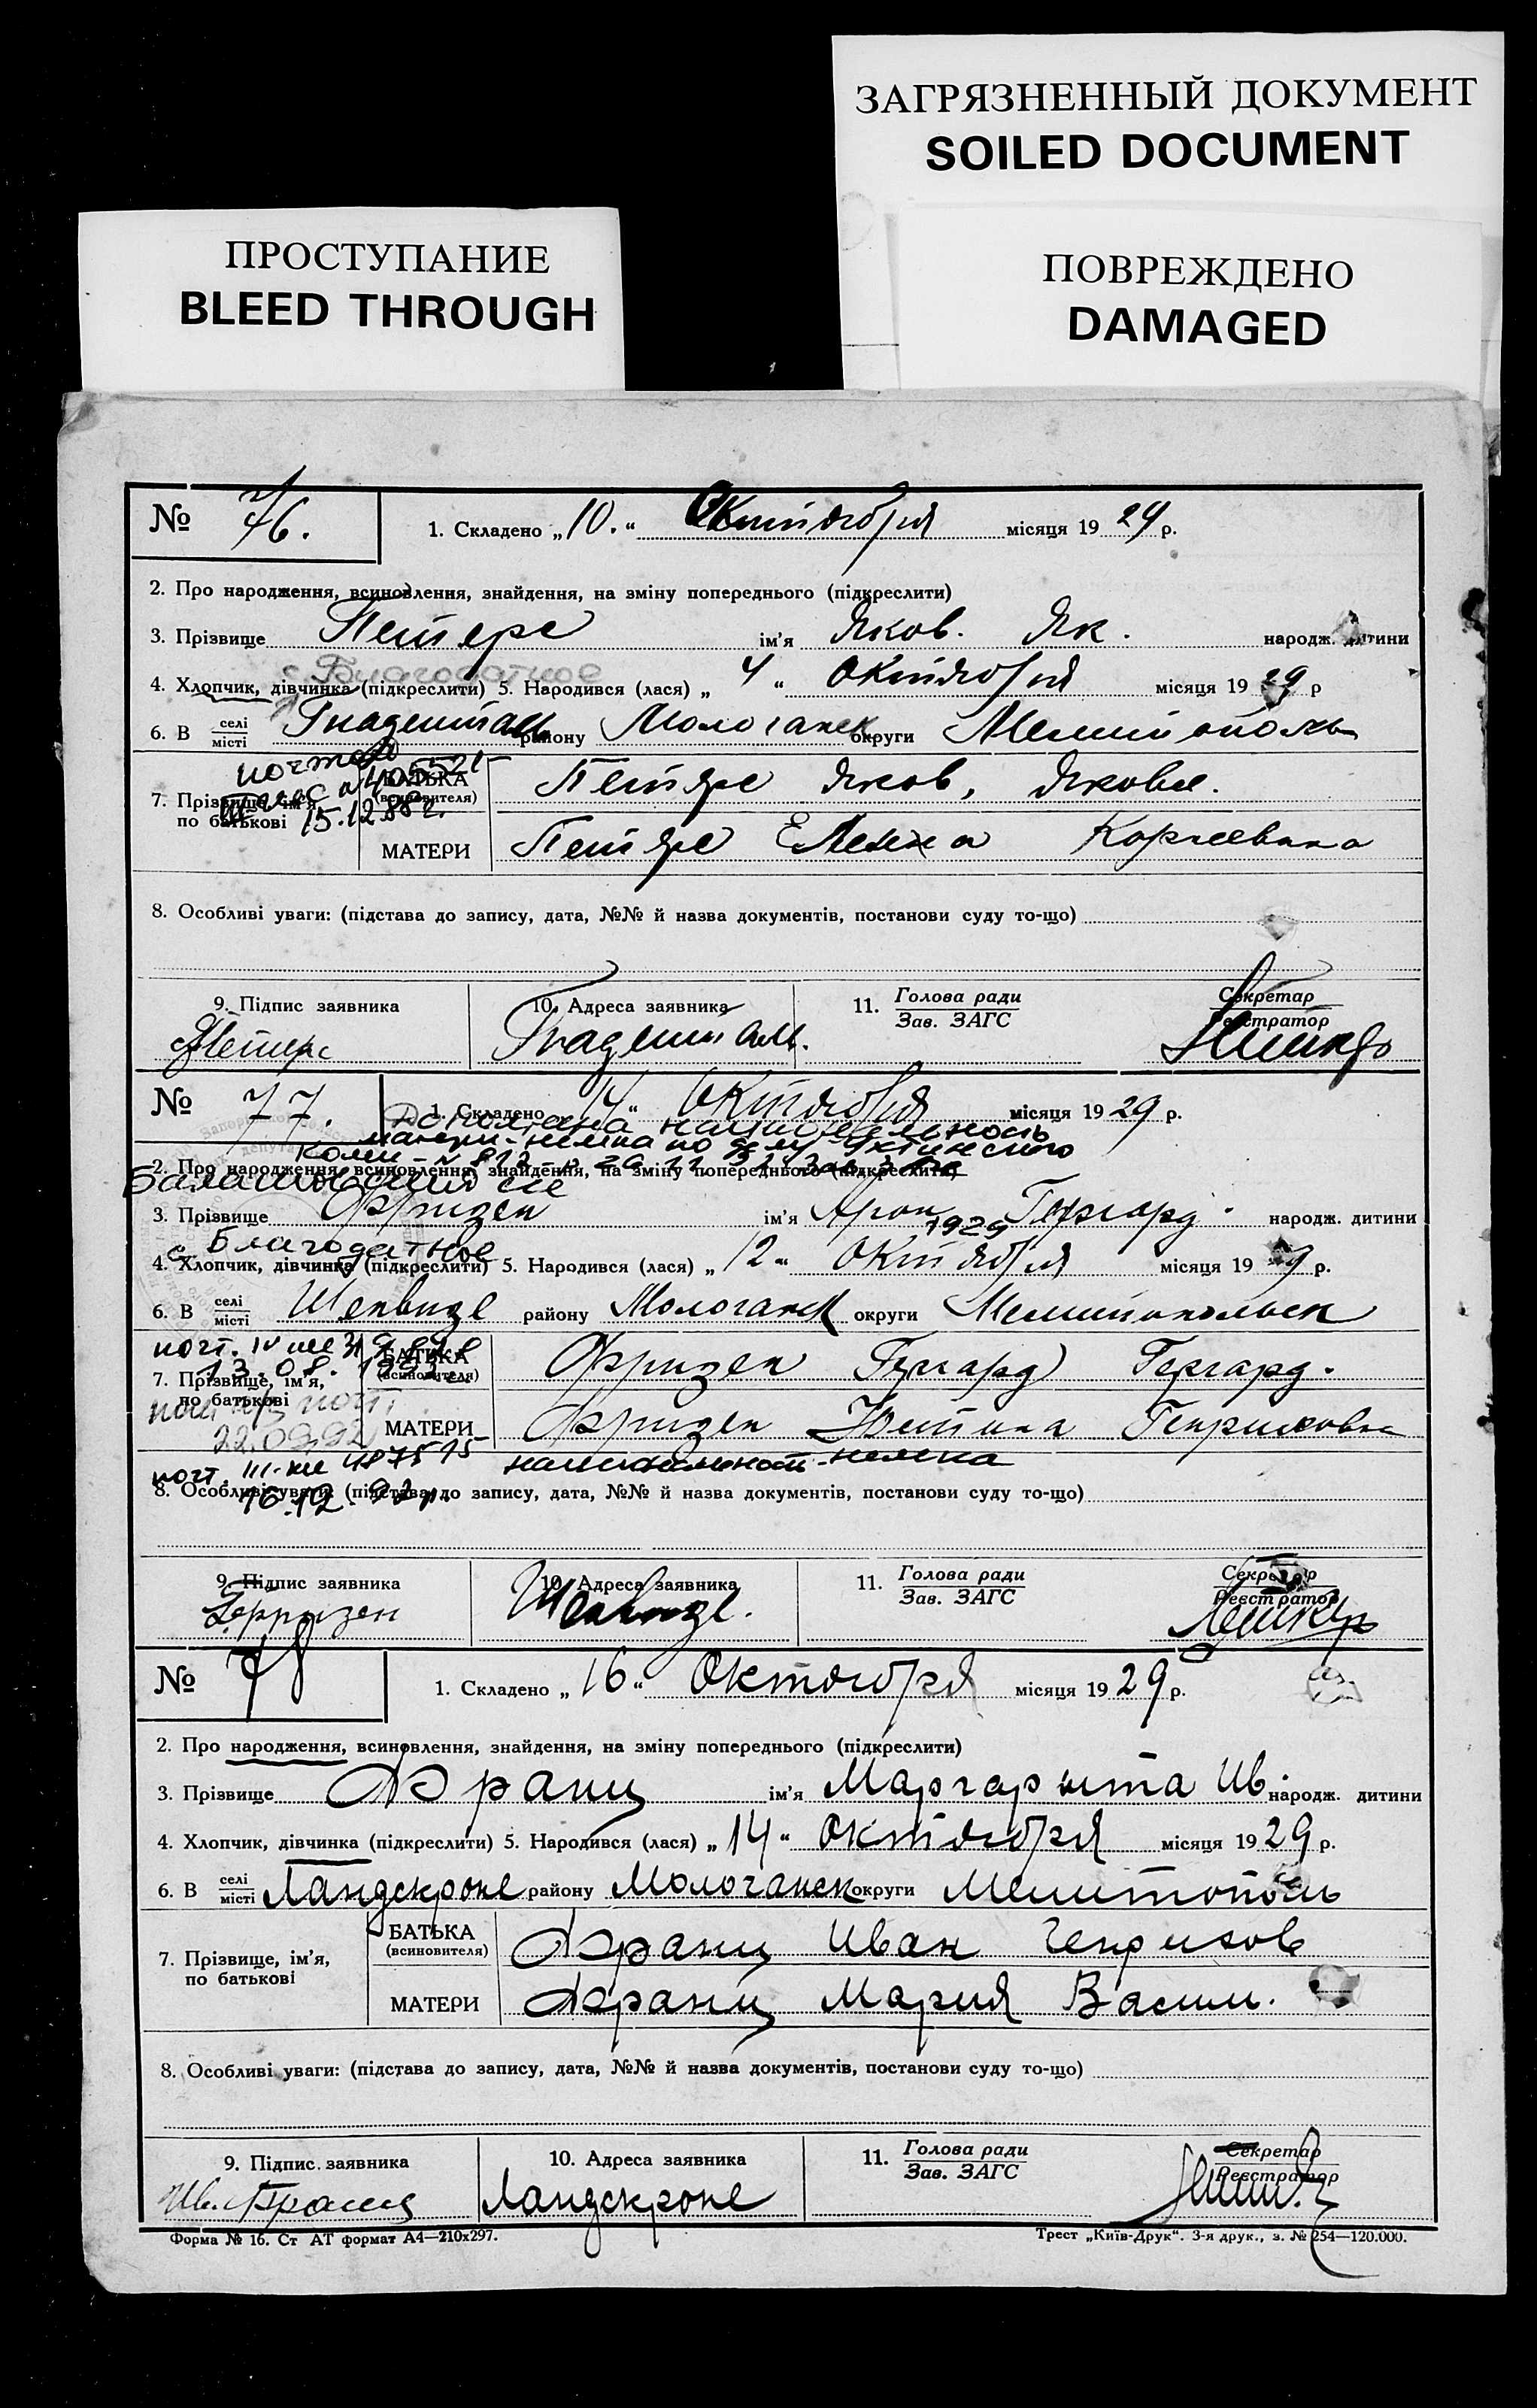 ЗАГРЯЗНЕННЫЙ ДОКУМЕНТ
SOILED DOCUMENT
ПРОСТУПАНИЕ
BLEED THROUGH
ПОВРЕЖДЕНО
DAMAGED
№ 76. 1. Складено „10.“ Октября місяця 1929 р.
2. Про народження, всиновлення, знайдення, на зміну попереднього (підкреслити)
3. Прізвище Петерс ім'я Яков. Як. народж. дитини
с. Благодатное
4. Хлопчик, дівчинка (підкреслити) 5. Народився (лася) „4“ Октября місяця 1929 р
6. В селі місті Гнаденталь району Молочанск округи Мелитополь
7. Прізвище, ім'я, по батькові
15.12.88г.
БАТЬКА (всиновителя) Петерс Яков, Яковл.
МАТЕРИ Петерс Елена Корнеевна
8. Особливі уваги: (підстава до запису, дата, №№ й назва документів, постанови суду то-що)
9. Підпис заявника 10. Адреса заявника 11. Голова ради Зав. ЗАГС Секретар Реєстратор
Петерс Гнаденталь.
№ 77. 1. Складено „14“ Октября місяця 1929 р.
Дополнена национальность
матери - немка по
2. Про народження, всиновлення, знайдення, на зміну попереднього (підкреслити)
3. Прізвище Фризен ім'я Арон Гергард. народж. дитини
с. Благодатное 1929
4. Хлопчик, дівчинка (підкреслити) 5. Народився (лася) „12“ Октября місяця 1929 р.
6. В селі місті Шенвизе району Молочанск округи Мелитопольск
13.08.
7. Прізвище, ім'я, по батькові
22.09.92
БАТЬКА (всиновителя) Фризен Гергард Гергард.
МАТЕРИ Фризен Юстина Генриховна
национальность - немка
16.12.92р.
8. Особливі уваги: (підстава до запису, дата, №№ й назва документів, постанови суду то-що)
9. Підпис заявника 10. Адреса заявника 11. Голова ради Зав. ЗАГС Секретар Реєстратор
Г.Фризен Шенвизе.
№ 78 1. Складено „16“ Октября місяця 1929 р.
2. Про народження, всиновлення, знайдення, на зміну попереднього (підкреслити)
3. Прізвище Франц ім'я Маргарита Ив. народж. дитини
4. Хлопчик, дівчинка (підкреслити) 5. Народився (лася) „14“ Октября місяця 1929 р.
6. В селі місті Ландскроне району Молочанск округи Мелитополь
7. Прізвище, ім'я, по батькові
БАТЬКА (всиновителя) Франц Иван Генрихов
МАТЕРИ Франц Мария Васил.
8. Особливі уваги: (підстава до запису, дата, №№ й назва документів, постанови суду то-що)
9. Підпис заявника 10. Адреса заявника 11. Голова ради Зав. ЗАГС Секретар Реєстратор
Ив. Франц Ландскроне
Форма № 16. Ст АТ формат А4—210х297. Трест „Київ-Друк“. 3-я друк., з. № 254—120.000.